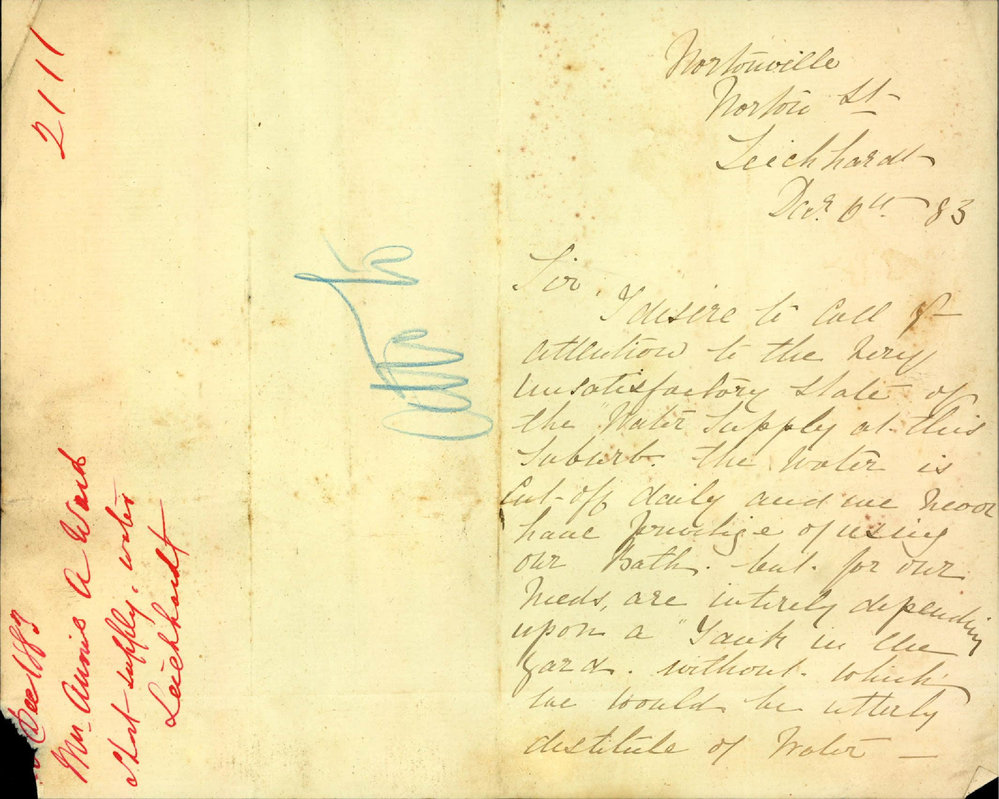 2111
Dec 1883
Mrs Annie A Ward
Short supply, water
Leichhardt
Nortonville
Norton St
Leichhardt
Decr 6th 83
Sir
I desire to call yr
attention to the very
unsatisfactory state of
the "Water Supply at this
Suburb. the Water is
Cut-off daily and we never
have privilige of using
our Bath. but for our
Needs, are intirely depending
upon a "Tank in the
yard. without which
we would be utterly
destitute of Water —